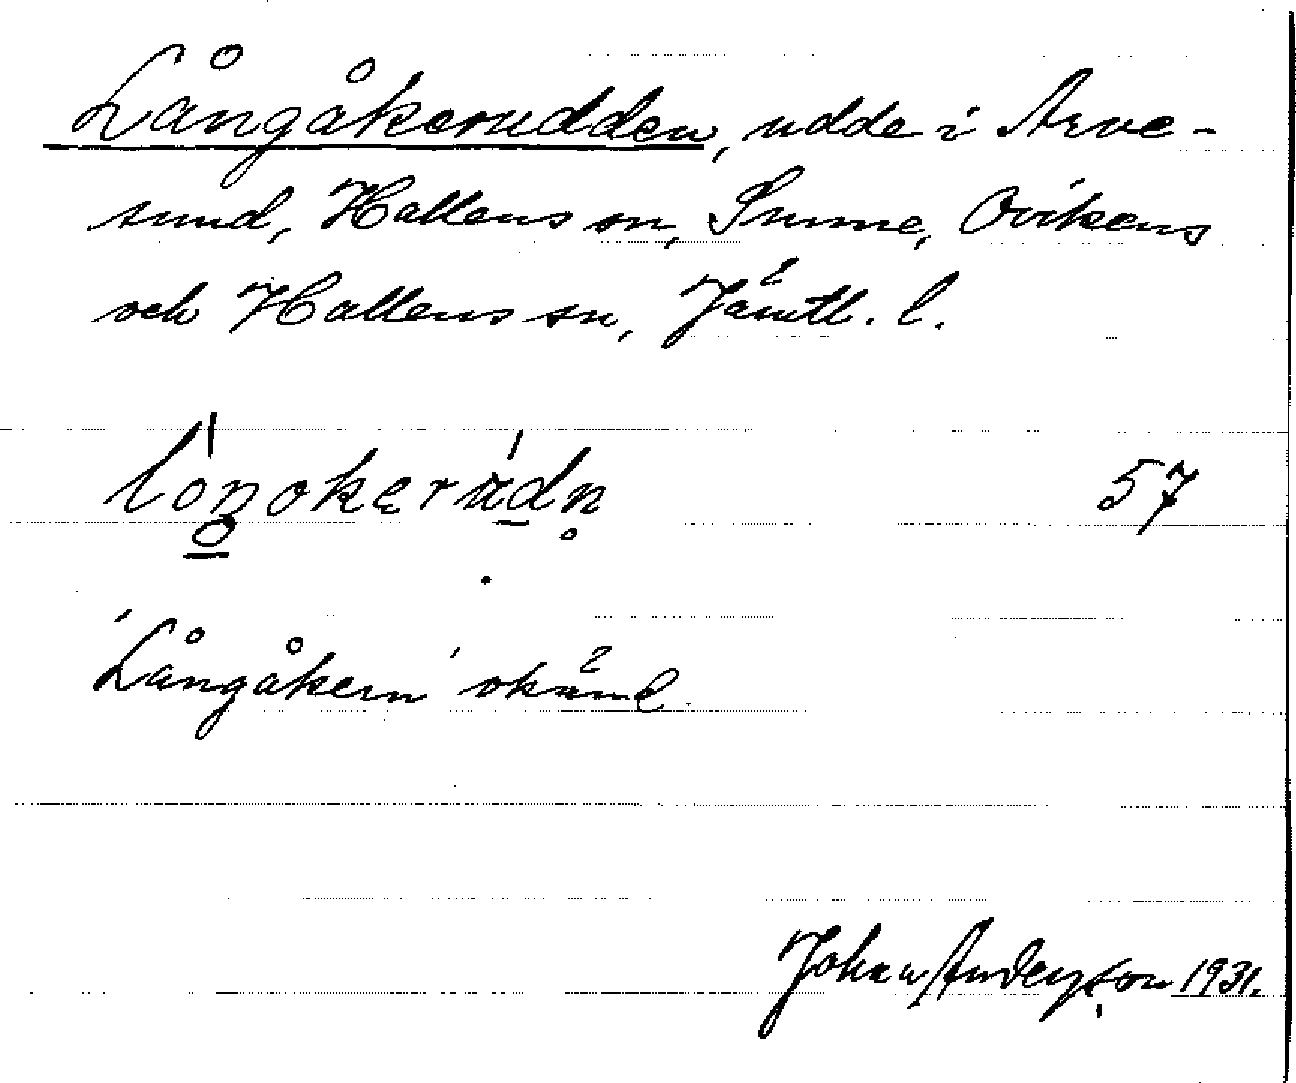 Långåkerudden, udde i Arve-
sund, Hallens sn, Sunne, Ovikens
och Hallens sn, Jämtl. l.
57
'Långåkern' okänd.
Johan Anderson 1931.